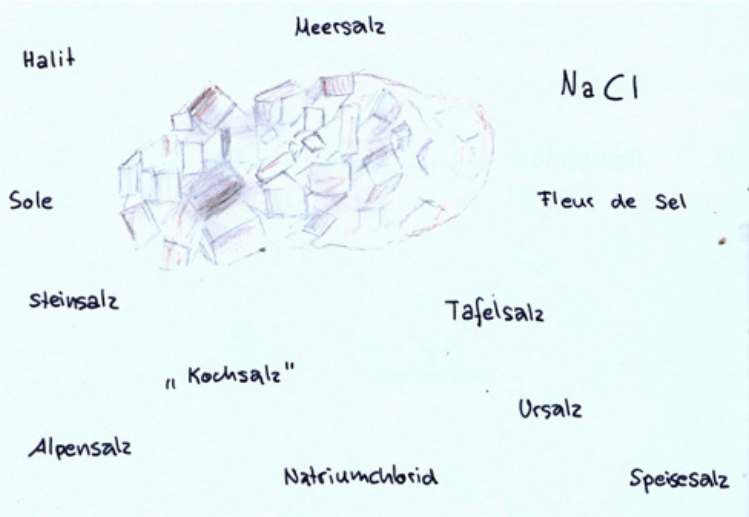 Meersalz
Halit
NaCl
Sole
Fleur de Sel
Steinsalz
Tafelsalz
„Kochsalz"
Ursalz
Alpensalz
Natriumchlorid
Speisesalz